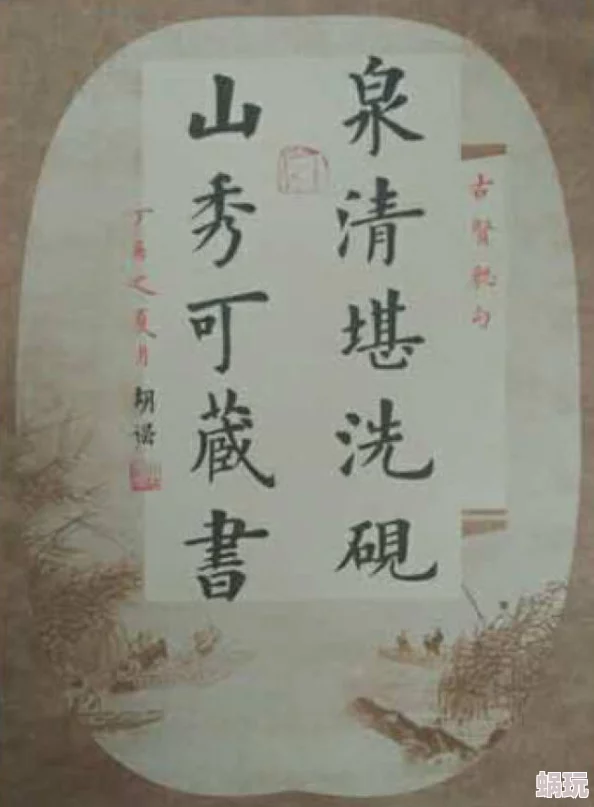 古贤龯句
泉清堪洗硯
山秀可蔵書
丁酉之夏月 胡溁
蜗玩